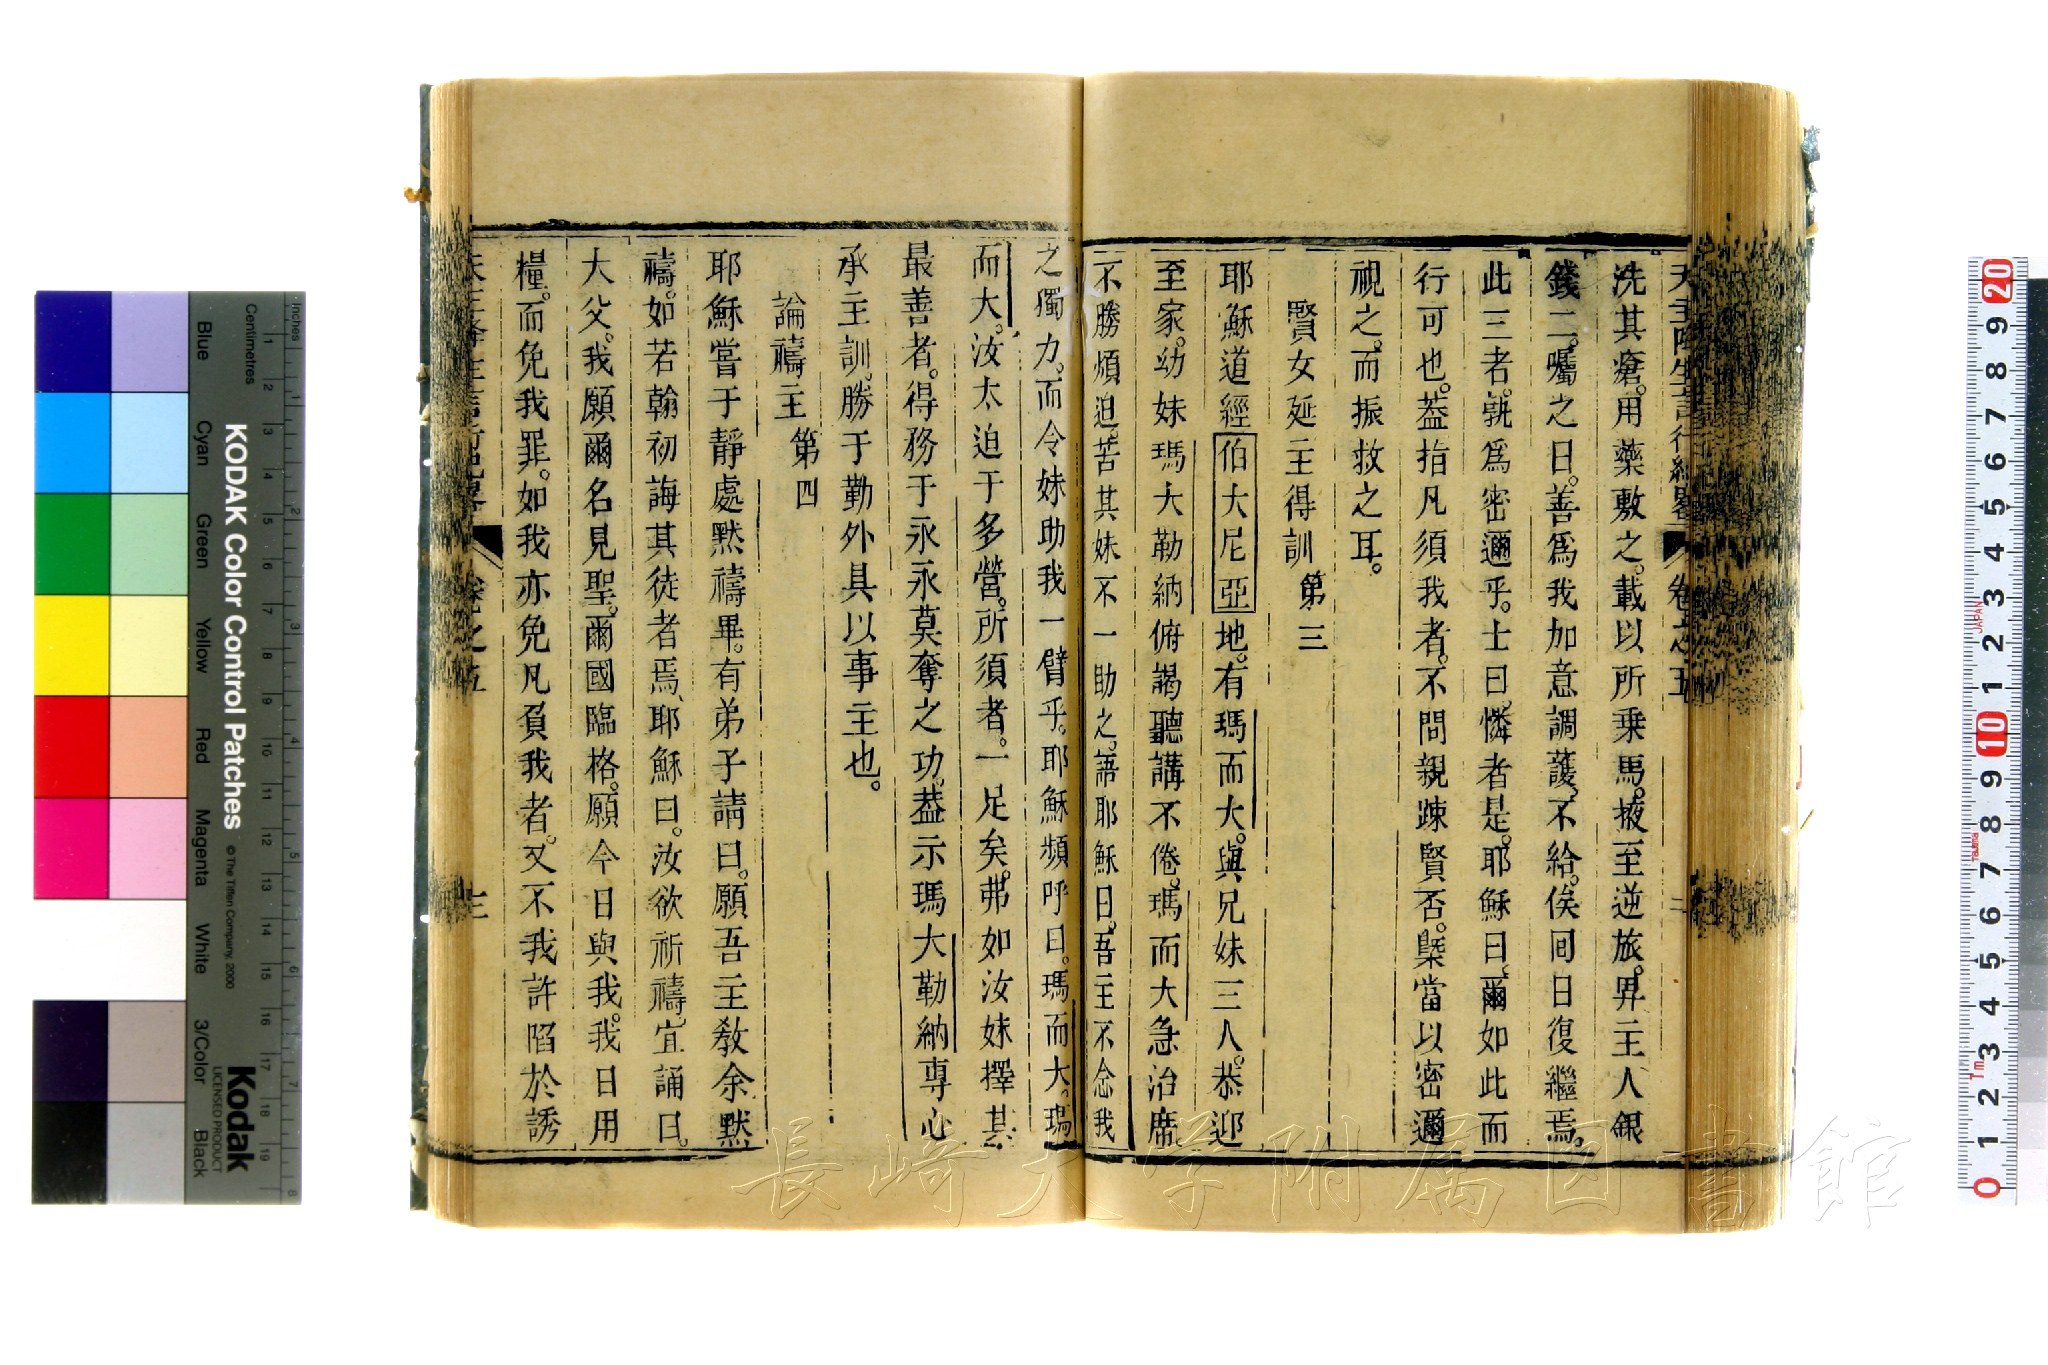 天主降生言行紀畧 卷之五 二
洗其瘡。用藥敷之。載以所乗馬。掖至逆旅。畀主人銀
錢二。囑之曰。善爲我加意調護。不給。俟囘日復繼焉。
此三者。孰爲密邇乎。士曰。憐者是。耶穌曰。爾如此而
行可也。葢指凡須我者。不問親疎賢否。槩當以密邇
視之。而振救之耳。
賢女延主得訓 第三
耶穌道經伯大尼亞地。有瑪而大。與兄妹三人。恭迎
至家。幼妹瑪大勒納俯謁聽講不倦。瑪而大急治席。
不勝煩迫。苦其妹不一助之。語耶穌曰。吾主不念我
之獨力。而令妹助我一臂乎。耶穌頻呼曰。瑪而大。瑪
而大。汝太迫于多營。所須者。一足矣。弗如汝妹擇其
最善者。得務于永永莫奪之功。葢示瑪大勒納專心
承主訓。勝于勤外具以事主也。
論禱主 第四
耶穌嘗于靜處黙禱畢。有弟子請曰。願吾主敎余黙
禱。如若翰初誨其徒者焉、耶穌曰。汝欲祈禱。宜誦曰。
大父。我願爾名見聖。爾國臨格。願今日與我。我日用
糧。而免我罪。如我亦免凡負我者。又不我許䧟於誘
天主降生言行紀畧 卷之五 三
KODAK Color Control Patches
© The Tiffen Company, 2000
Kodak
LICENSED PRODUCT
Inches
Centimetres
Blue
Cyan
Green
Yellow
Red
Magenta
White
3/Color
Black
長崎大学附属図書館